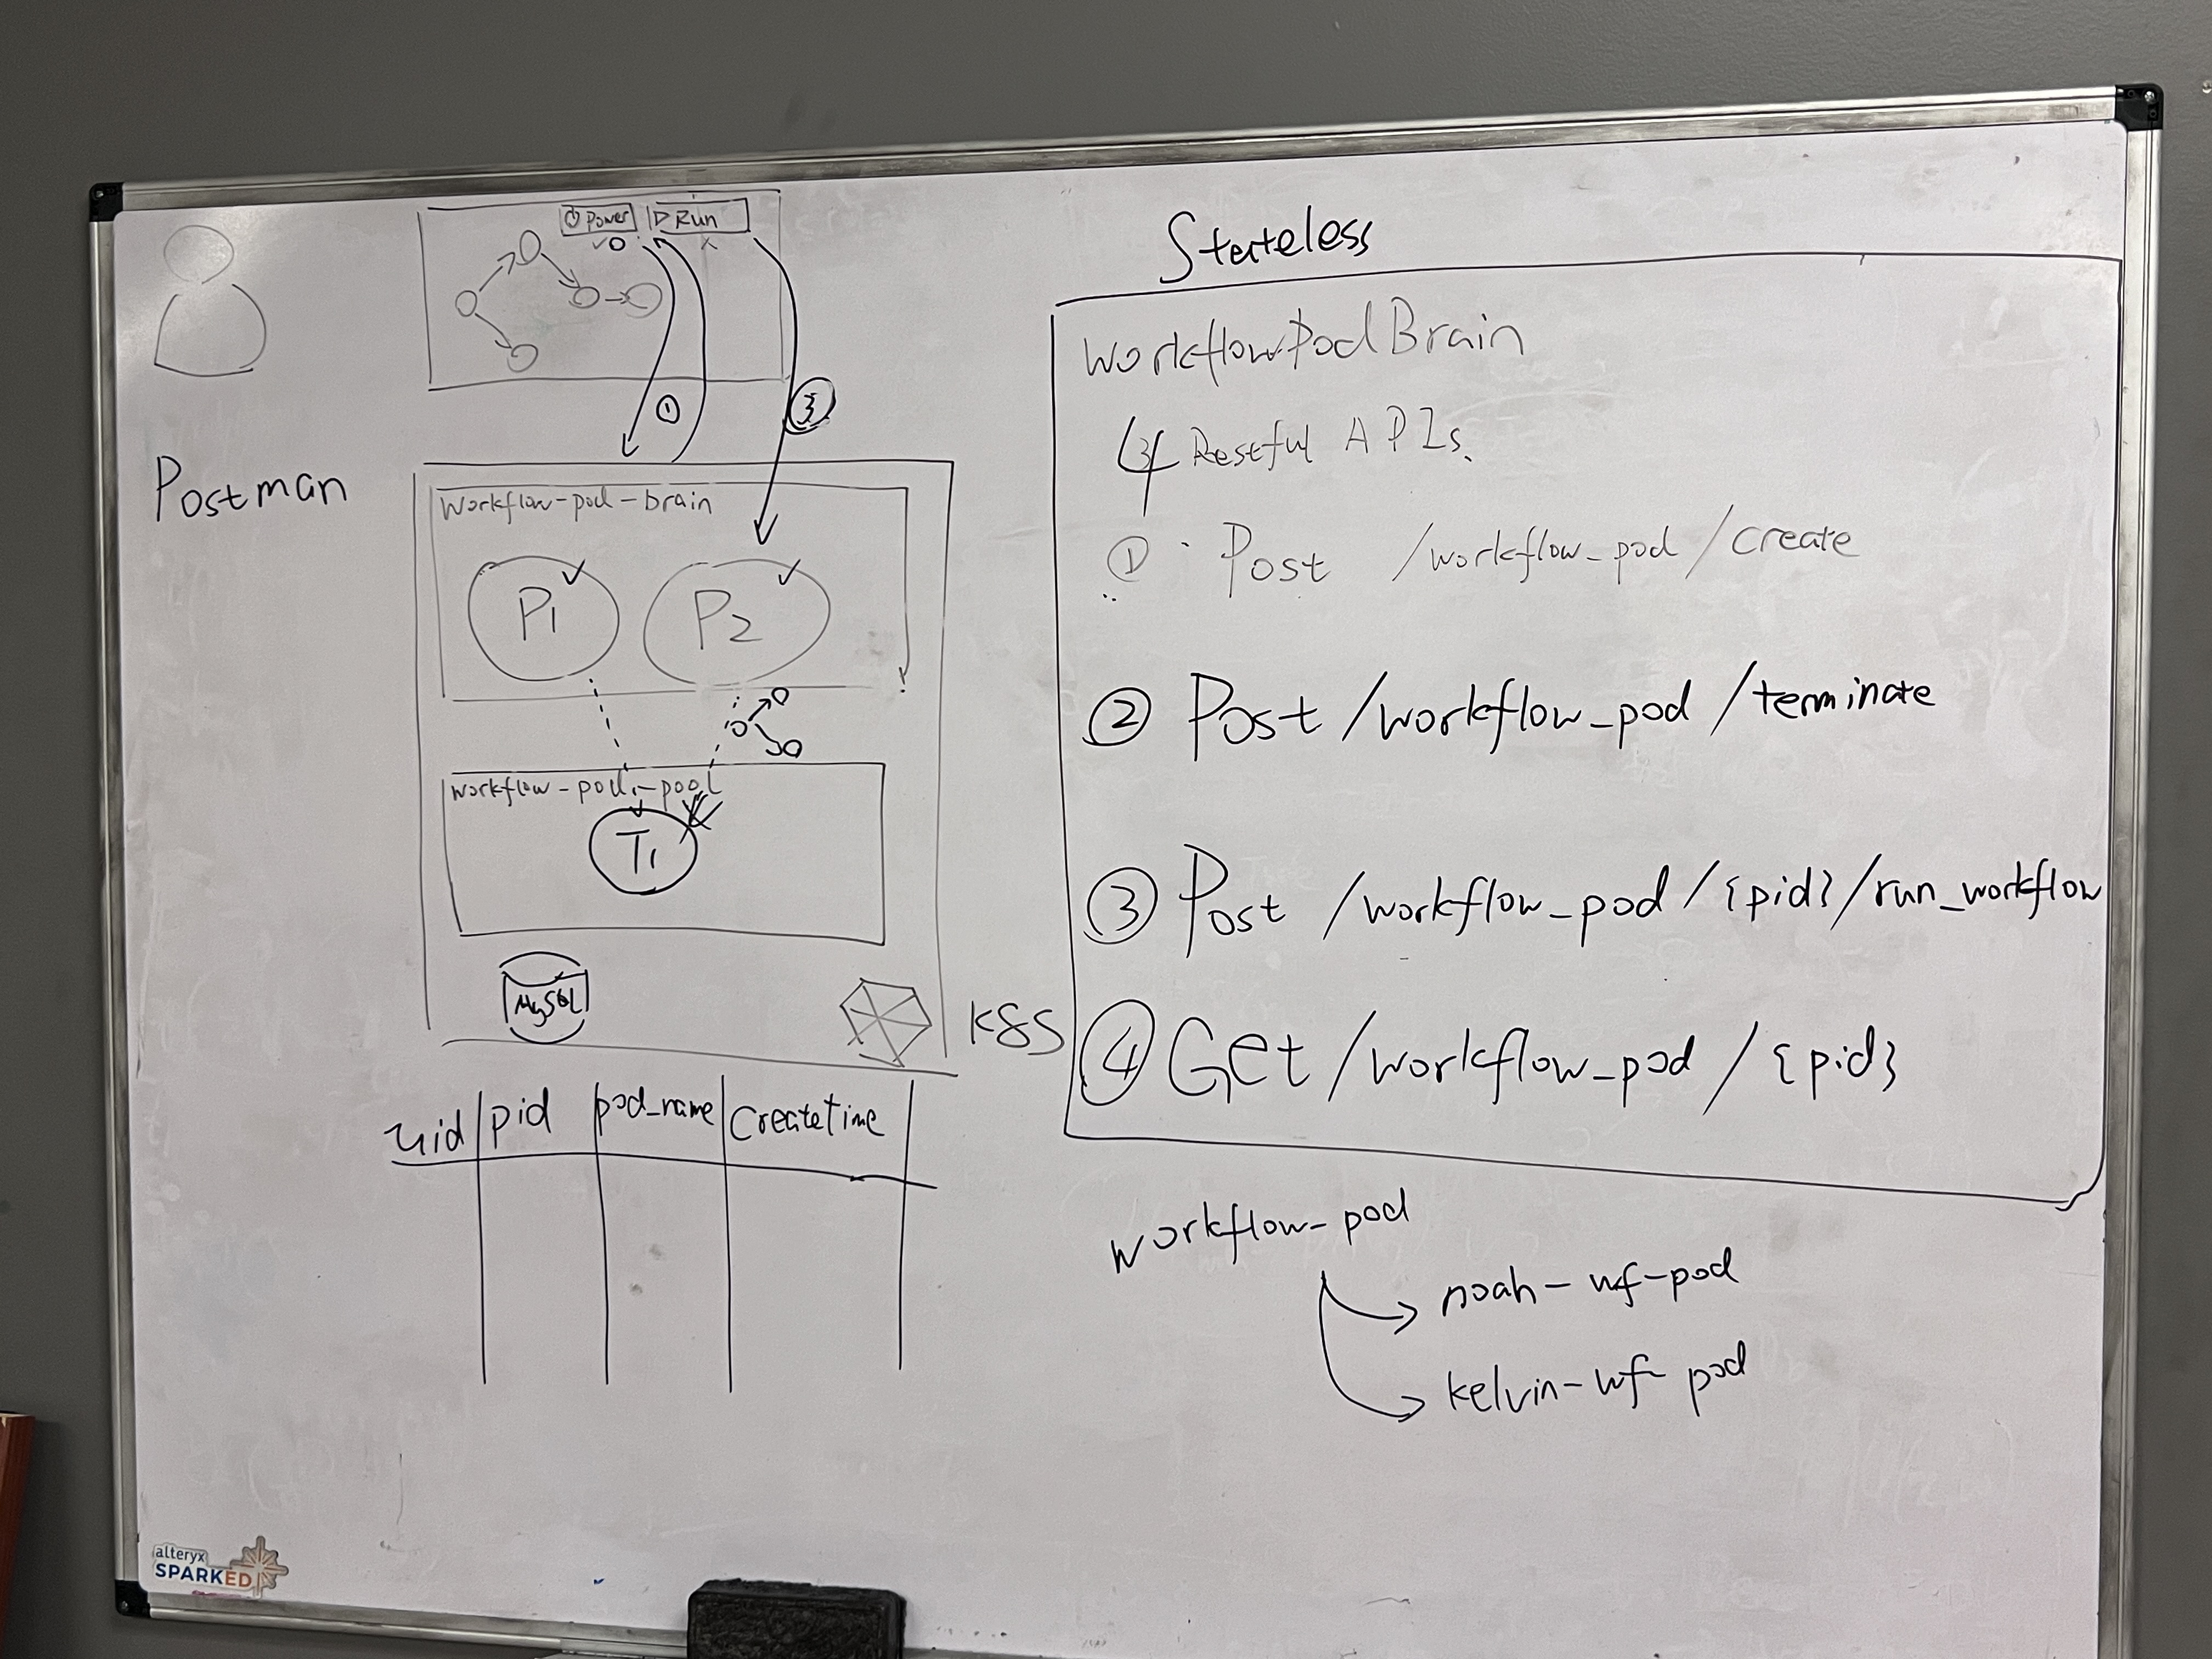 Power
Run
①
③
Postman
workflow-pod-brain
P1
P2
workflow-pod-pool
T1
MySQL
K8S
uid pid pod_name CreateTime
Stateless
WorkflowPodBrain
4 Restful APIs.
① Post /workflow_pod/create
② Post /workflow_pod/terminate
③ Post /workflow_pod/{pid}/run_workflow
④ Get /workflow_pod/{pid}
workflow-pod
noah-wf-pod
kelvin-wf-pod
alteryx
SPARKED